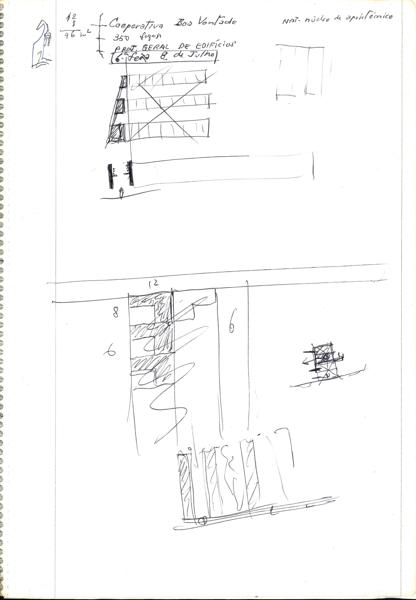 12
8
96 m²
Cooperativa Boa Vontade
350 fogos
PROJ. GERAL DE EDIFÍCIOS
6ª feira 8 de Julho
NAT- núcleo de
12
8
6
6